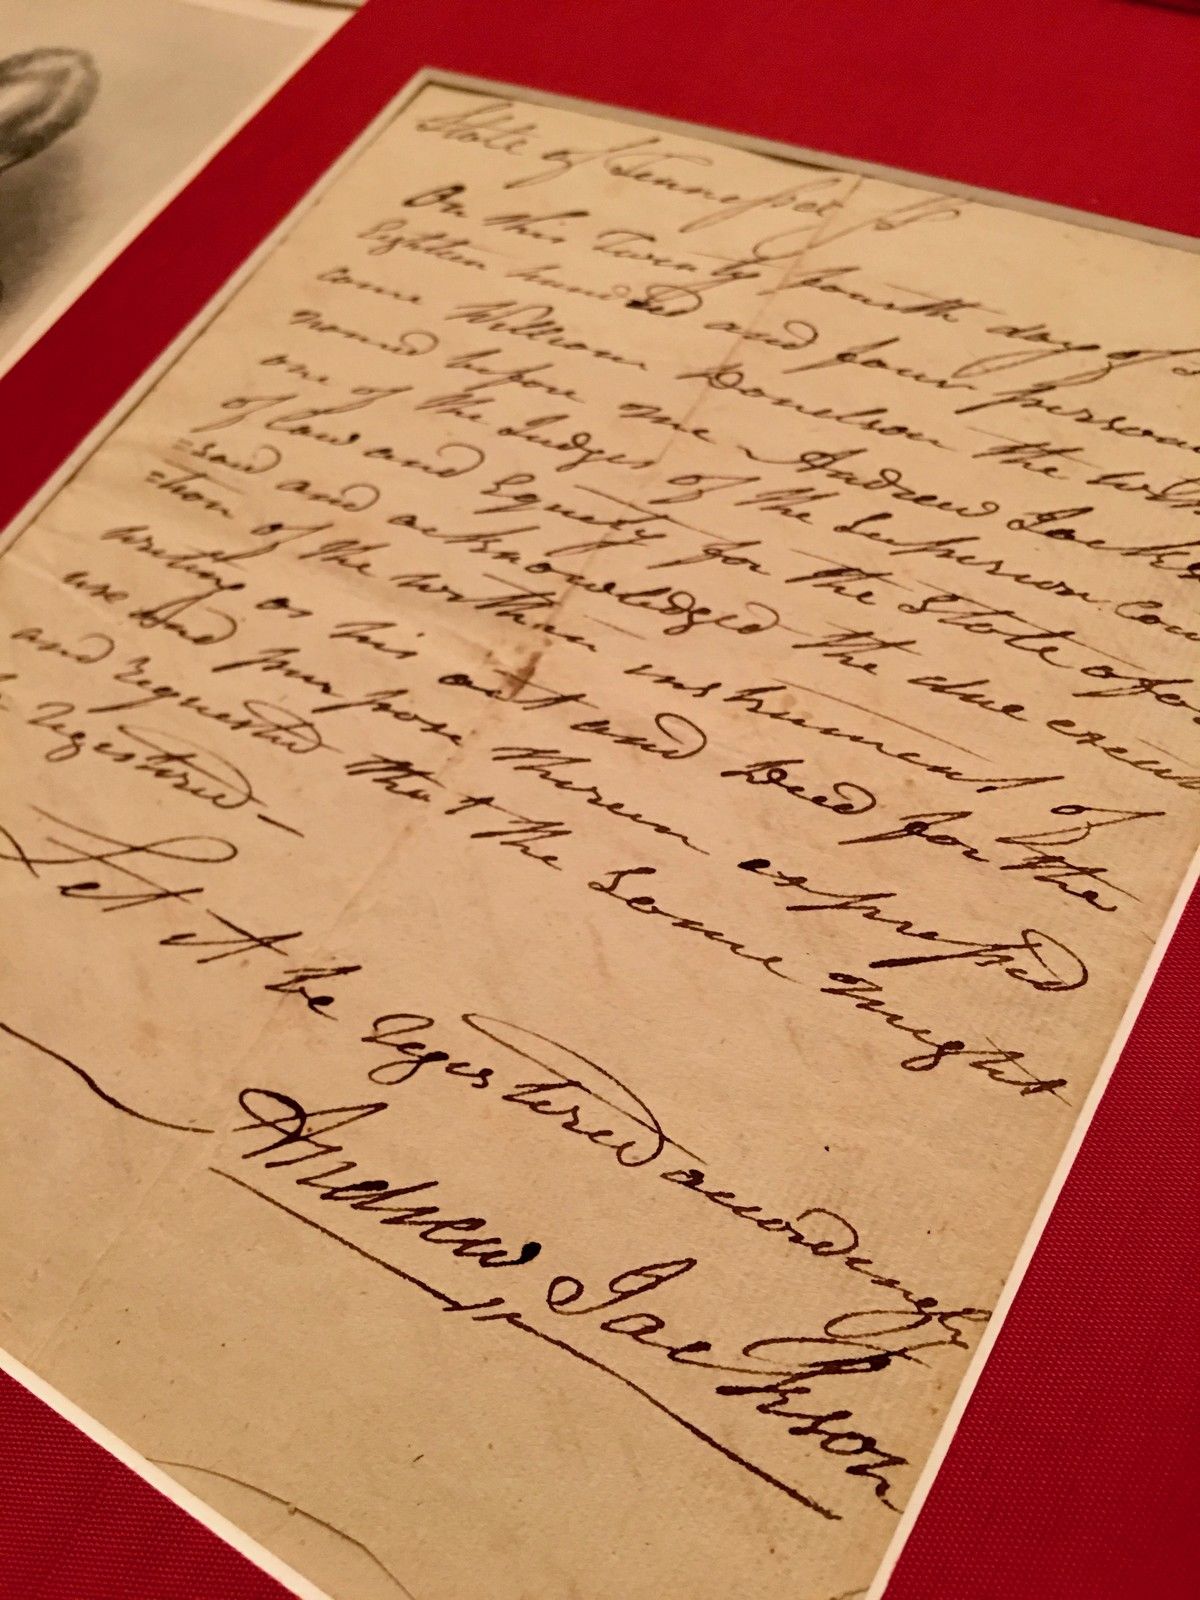 State of Tennessee Ss
On this Twenty fourth day of
Eighteen hundred and four persona
came William Donelson the with
named before me Andrew Jacks
one of the Judges of the Superior Cou
of law and Equity for the State afor
=said and acknowledged the due execu
=tion of the within instrument of
writing as his act and Deed for the
use and purpose therein expressed
and requested that the Same might
registered —
Let it be registered accordingly
Andrew Jackson